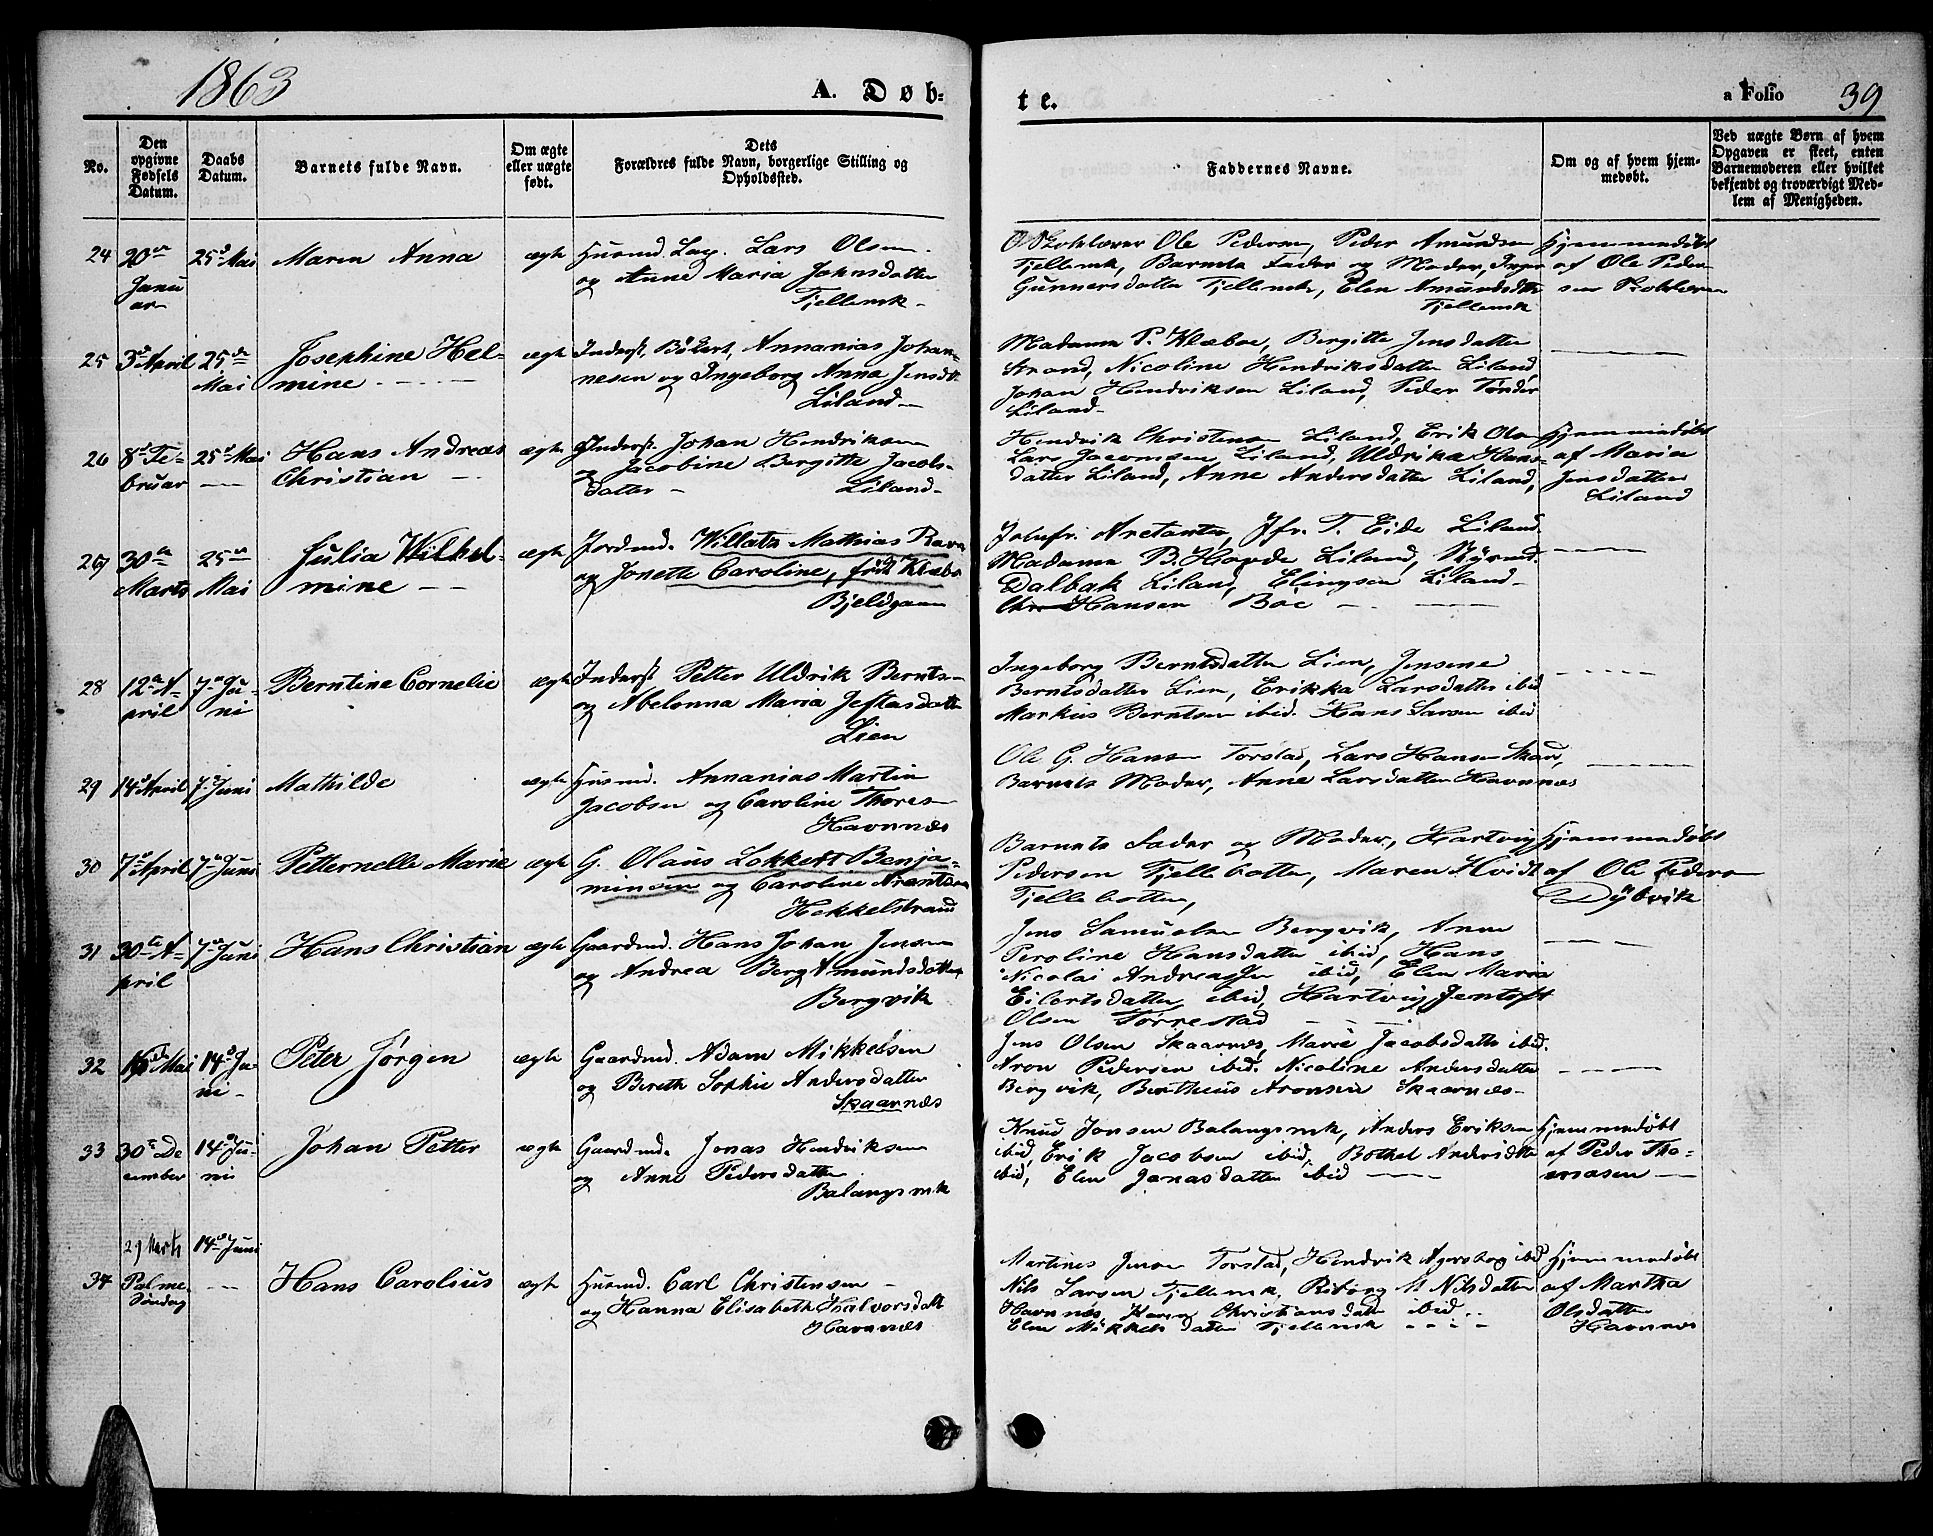 1863
A. Døb-
te.
a Folio 39
No.
Den opgivne Fødsels Datum.
Daabs Datum.
Barnets fulde Navn.
Om ægte eller uægte født.
Dets Forældres fulde Navn, borgerlige Stilling og Opholdssted.
Faddernes Navne.
Om og af hvem hjemmedøbt.
Ved uægte Børn af hvem Opgaven er skeet, enten Barnemoderen eller hvilket bekjendt og troværdigt Medlem af Menigheden.
24 20de Januar 25de Mai Maren Anna ægte Husmd. Lap. Lars Olsen
og Anne Maria Johnsdatter
Fjellemk
Skolelærer Ole Pedersen, Peder Amundsen
Fjellemk, Barnets Fader og Moder, Inger
Gunnersdatter Fjellemk, Elen Amundsdtr
Fjellemk
Hjemmedøbt
af Ole Peder-
sen Skolelærer
25 3d April 25de Mai Josephine Hel-
mine ægte
Inderst, Bøkert, Annanias Johan-
nesen og Ingeborg Anna Jensdt.
Liland
Madame P. Klæboe, Bergitte Jensdatter
Strand, Nicoline Hendriksdatter Liland,
Johan Hendriksen Liland, Peder Tønder
Liland
26 8de Februar 25de Mai Hans Andreas
Christian ægte
Inderst. Johan Hendriksen
og Jacobine Bergitte Jacobs-
datter Liland
Hendrik Christensen Liland, Erik Olsen
Lars Liland, Uldrika Hans-
datter Liland, Anne Andersdatter Liland,
Hjemmedøbt
af Maria
Jensdatter
Liland
27 30de Marts 25de Mai Julia Wilhel-
mine ægte
Jordmd. Willats Mathias Ravn
og Jonette Caroline, født Klæbo
Bjeldgam
Jomfr. Jfr. T. Eide Liland
Madame B. Liland,
Dalbak Liland, Elingsen Liland
Hansen Boe
28 12te April 7de Juni Berntine Cornelie ægte Inderst Petter Uldrik Berntsen
og Abelonna Maria Jeftasdatter
Lien
Ingeborg Berntsdatter Lien, Jensene
Berntsdatter Lien, Erikka Larsdatter ibid
Markus Berntsen ibid. Hans Larsen ibid
29 14d April 7de Juni Mathilde ægte Husmd. Annanias Martin
Jacobsen og Caroline Thores
Havnnæs
Ole G. Hansen Torstad, Lars Hansen Skar,
Barnets Moder, Anne Larsdatter Havnnæs
30 7de April 7de Juni Petternelle Marie ægte G. Olaus Lokkert Benja-
minsen og Caroline Arentsen
Hekkelstrand
Barnets Fader og Moder, Hartvig
Pedersen Fjellbotten, Maren Hvidt
Fjellebotten,
Hjemmedøbt
af Ole Pedersen
Dybvik
31 30te April 7de Juni Hans Christian ægte Gaardmd. Hans Johan Jensen
og Andrea Berg Amundsdatter
Bergvik
Jens Samuelsen Bergvik, Anne
Peroline Hansdatter ibid, Hans
Nicolai Andreassen ibid, Elen Maria
Eilertsdatter ibid, Hartvig Jentoft
Olsen Torrestad
32 Mai 14de Juni Peter Jørgen ægte Gaardmd. Adam Mikkelsen
og Bireth Sophie Andersdatter
Skaarnæs
Jens Olsen Skaarnæs, Marie Jacobsdatter ibid.
Aron Pedersen ibid. Nicoline Andersdatter
Bergvik, Bertheus Aronsen Skaarnæs
33 30te December 14de Juni Johan Petter ægte Gaardmd. Jonas Hendriksen
og Anne Pedersdatter
Balangsmk
Knud Jonsen Balangsmk, Anders Eriksen
ibid, Erik Jacobsen ibid, Bothel Andersdtr
ibid, Elen Jonasdatter ibid
Hjemmedøbt
af Peder Tho-
massen
34 29 Marts Palme Søndag 14de Juni Hans Carolius ægte Husmd. Carl Christensen
og Hanna Elisabeth Halvorsdatt
Havnnæs
Martines Jensen Torstad, Hendrik Agerskog ibid
Nils Larsen Fjellemk, Riborg M Nilsdatter
Havnnæs, Karen Christiansdatter ibid
Elen Mikkelsdatter Fjellemk
Hjemmedøbt
af Martha
Olsdatter
Havnnæs